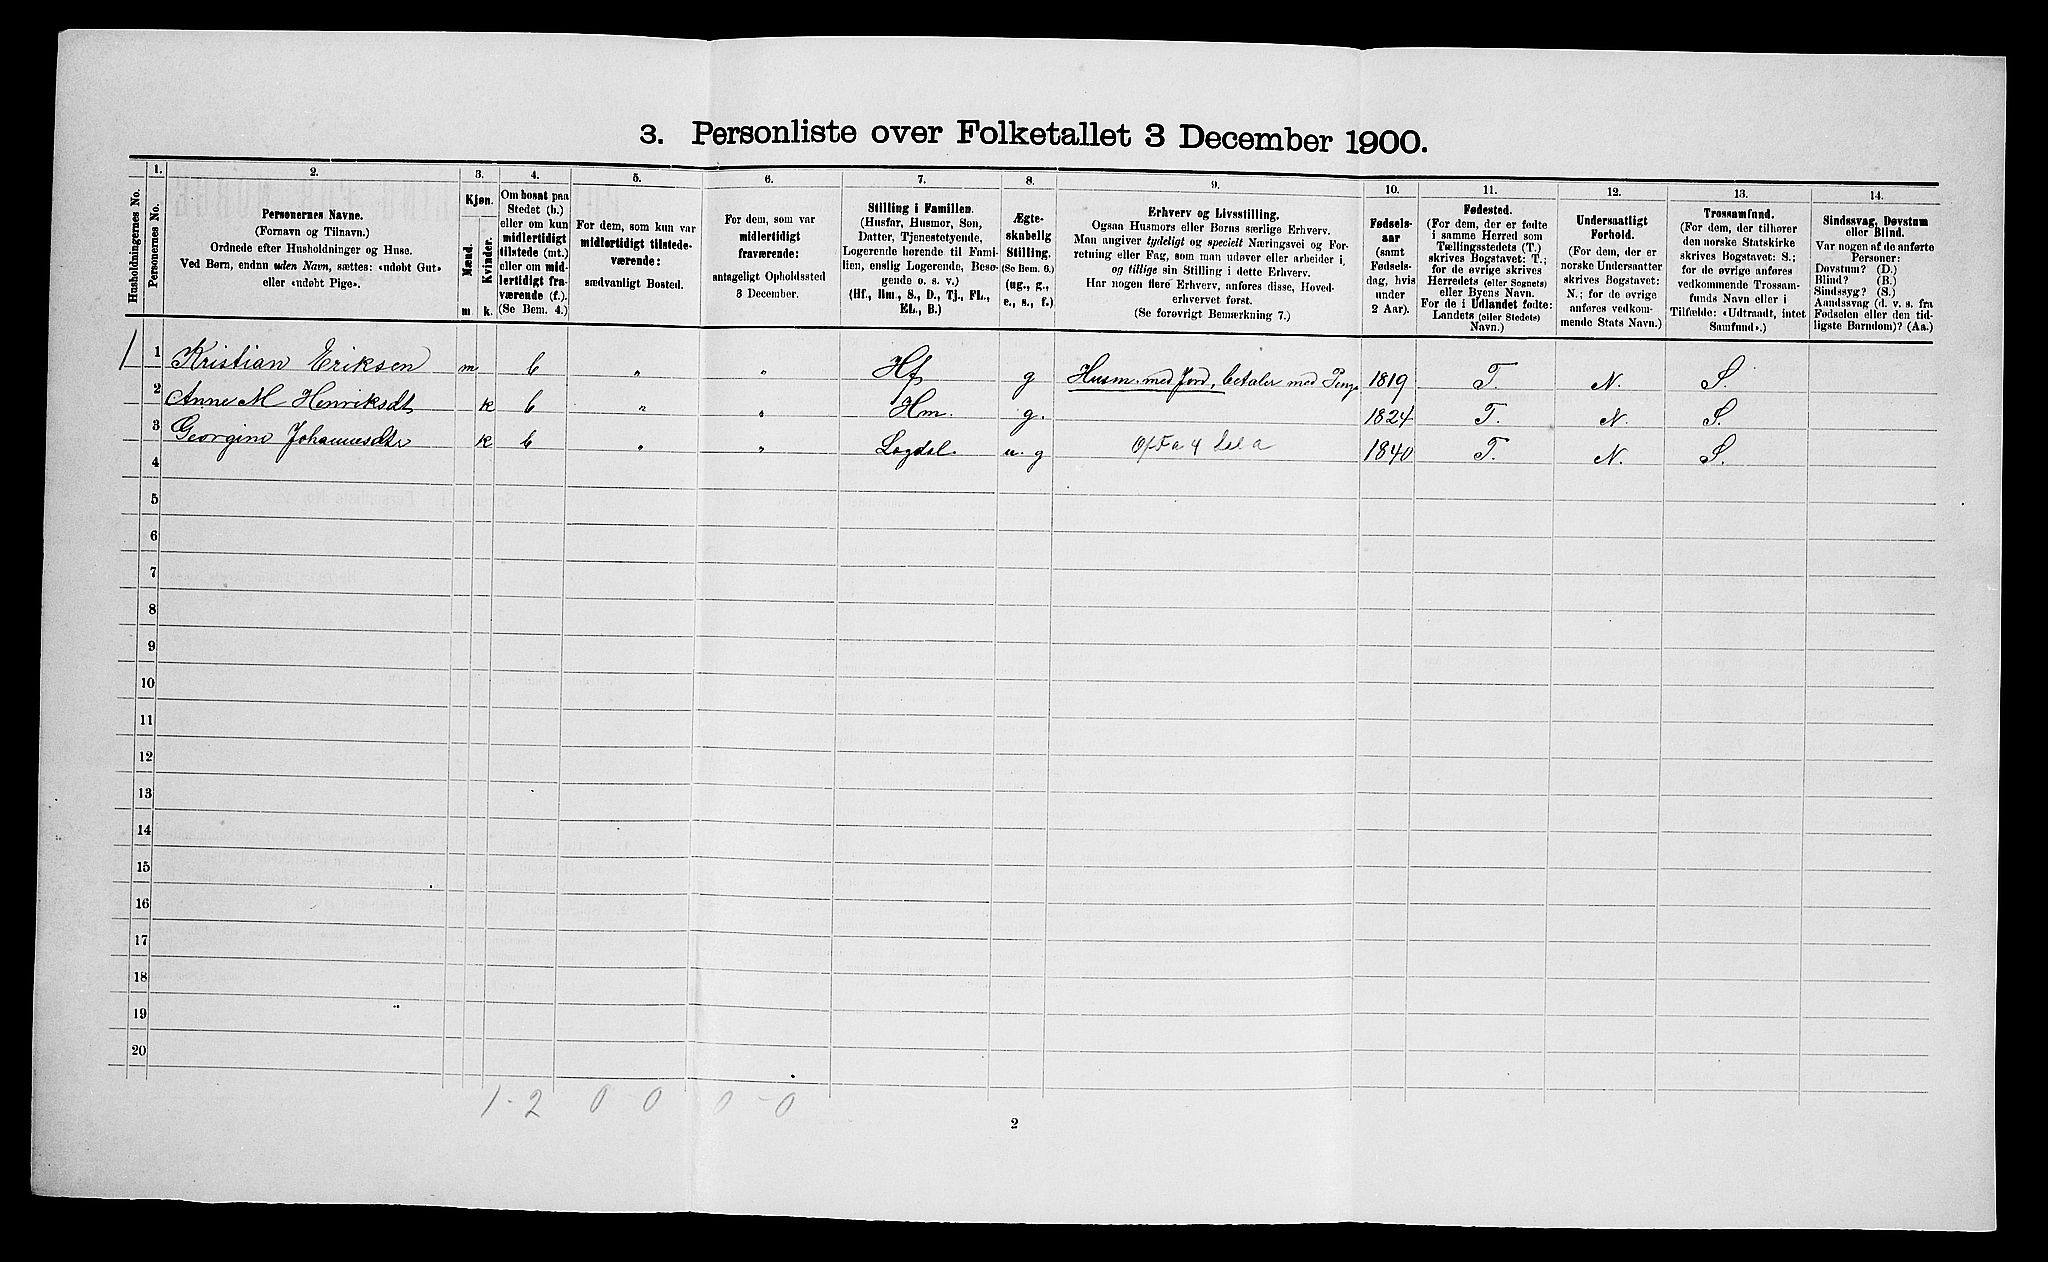 3. Personliste over Folketallet 3 December 1900.
Husholdningernes No.
1.
Personernes No.
2.
Personernes Navne.
(Fornavn og Tilnavn.)
Ordnede efter Husholdninger og Huse.
Ved Børn, endnu uden Navn, sættes: «udøbt Gut»
eller «udøbt Pige».
3.
Kjøn.
Mænd.
Kvinder.
m. k.
4.
Om bosat paa
Stedet (b.)
eller om kun
midlertidigt
tilstede (mt.)
eller om mid-
lertidigt fra-
værende (f.).
(Se Bem. 4.)
5.
For dem, som kun var
midlertidigt tilstede-
værende:
sædvanligt Bosted.
6.
For dem, som var
midlertidigt
fraværende:
antageligt Opholdssted
3 December.
7.
Stilling i Familien.
(Husfar, Husmor, Søn,
Datter, Tjenestetyende,
Logerende hørende til Fami-
lien, enslig Logerende, Besø-
gende o. s. v.)
(Hf., Hm., S., D., Tj., FL.,
EL., B.)
8.
Ægte-
skabelig
Stilling.
(Se Bem. 6.)
(ug., g.,
e., s., f.)
9.
Erhverv og Livsstilling.
Ogsaa Husmors eller Børns særlige Erhverv.
Man angiver tydeligt og specielt Næringsvei og For-
retning eller Fag, som man udøver eller arbeider i,
og tillige sin Stilling i dette Erhverv.
Har nogen flere Erhverv, anføres disse, Hoved-
erhvervet først.
(Se forøvrigt Bemærkning 7.)
10.
Fødsels-
aar
(samt
Fødsels-
dag, hvis
under
2 Aar).
11.
Fødested.
(For dem, der er fødte
i samme Herred som
Tællingsstedets (T.)
skrives Bogstavet: T.;
for de øvrige skrives
Herredets (eller Sognets)
eller Byens Navn.
For de i Udlandet fødte:
Landets (eller Stedets)
Navn.)
12.
Undersaatligt
Forhold.
(For dem, der er
norske Undersaatter
skrives Bogstavet:
N.; for de øvrige
anføres vedkom-
mende Stats Navn.)
13.
Trossamfund.
(For dem, der tilhører
den norske Statskirke
skrives Bogstavet: S.;
for de øvrige anføres
vedkommende Trossam-
funds Navn eller i
Tilfælde: «Udtraadt, intet
Samfund».)
14.
Sindssvag, Døvstum
eller Blind.
Var nogen af de anførte
Personer:
Døvstum? (D.)
Blind? (B.)
Sindssyg? (S.)
Aandssvag (d. v. s. fra
Fødselen eller den tid-
ligste Barndom)? (Aa.)
1 1 Kristian Eriksen m b " " Hf g Husm. med Jord, betaler med Penge 1819 T. N. S.
2 Anne M Henriksdt k b " " Hm. g. 1824 T. N. S.
3 Georgine Johannesdtr k b " " Logdel. u. g 1840 T. N. S.
4
5
6
7
8
9
10
11
12
13
14
15
16
17
18
19
20
1 - 2 0 - 0 0 - 0
2